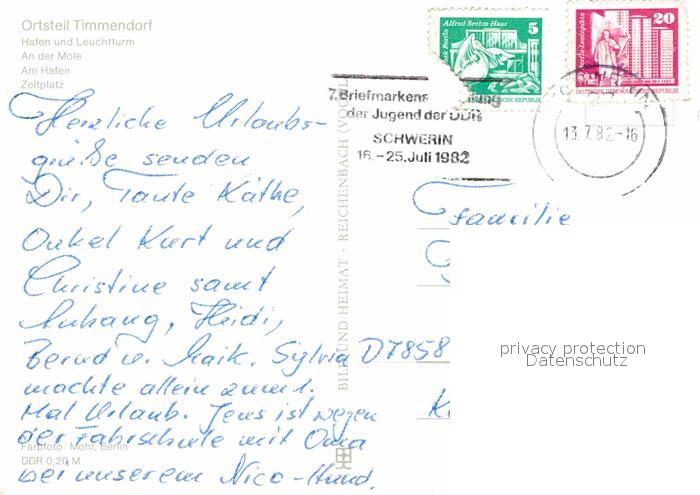 Ortsteil Timmendorf
Hafen und Leuchtturm
An der Mole
Am Hafen
Zeltplatz
Herzliche Urlaubs-
grüße senden
Dir, Tante Käthe,
Onkel Kurt und
Christine samt
Anhang, Heidi,
Bernd u. Maik. Sylvia
machte allein zum 1.
Mal Urlaub. Jens ist wegen
der Fahrschule mit Oma
bei unserem Nico-Hund.
Farbfoto: Mohr, Berlin
DDR 0,20 M
BILD UND HEIMAT · REICHENBACH (VO
7. Briefmarkens
der Jugend der DDR
SCHWERIN
16.-25. Juli 1982
13.7.82-16
Alfred Brehm-Haus
5
Berlin
REPUBLIK
20
Berlin-Leninplatz
DEUTSCHE DEMOKRATISCHE REPUBLIK
Familie
D7858
K
privacy protection
Datenschutz